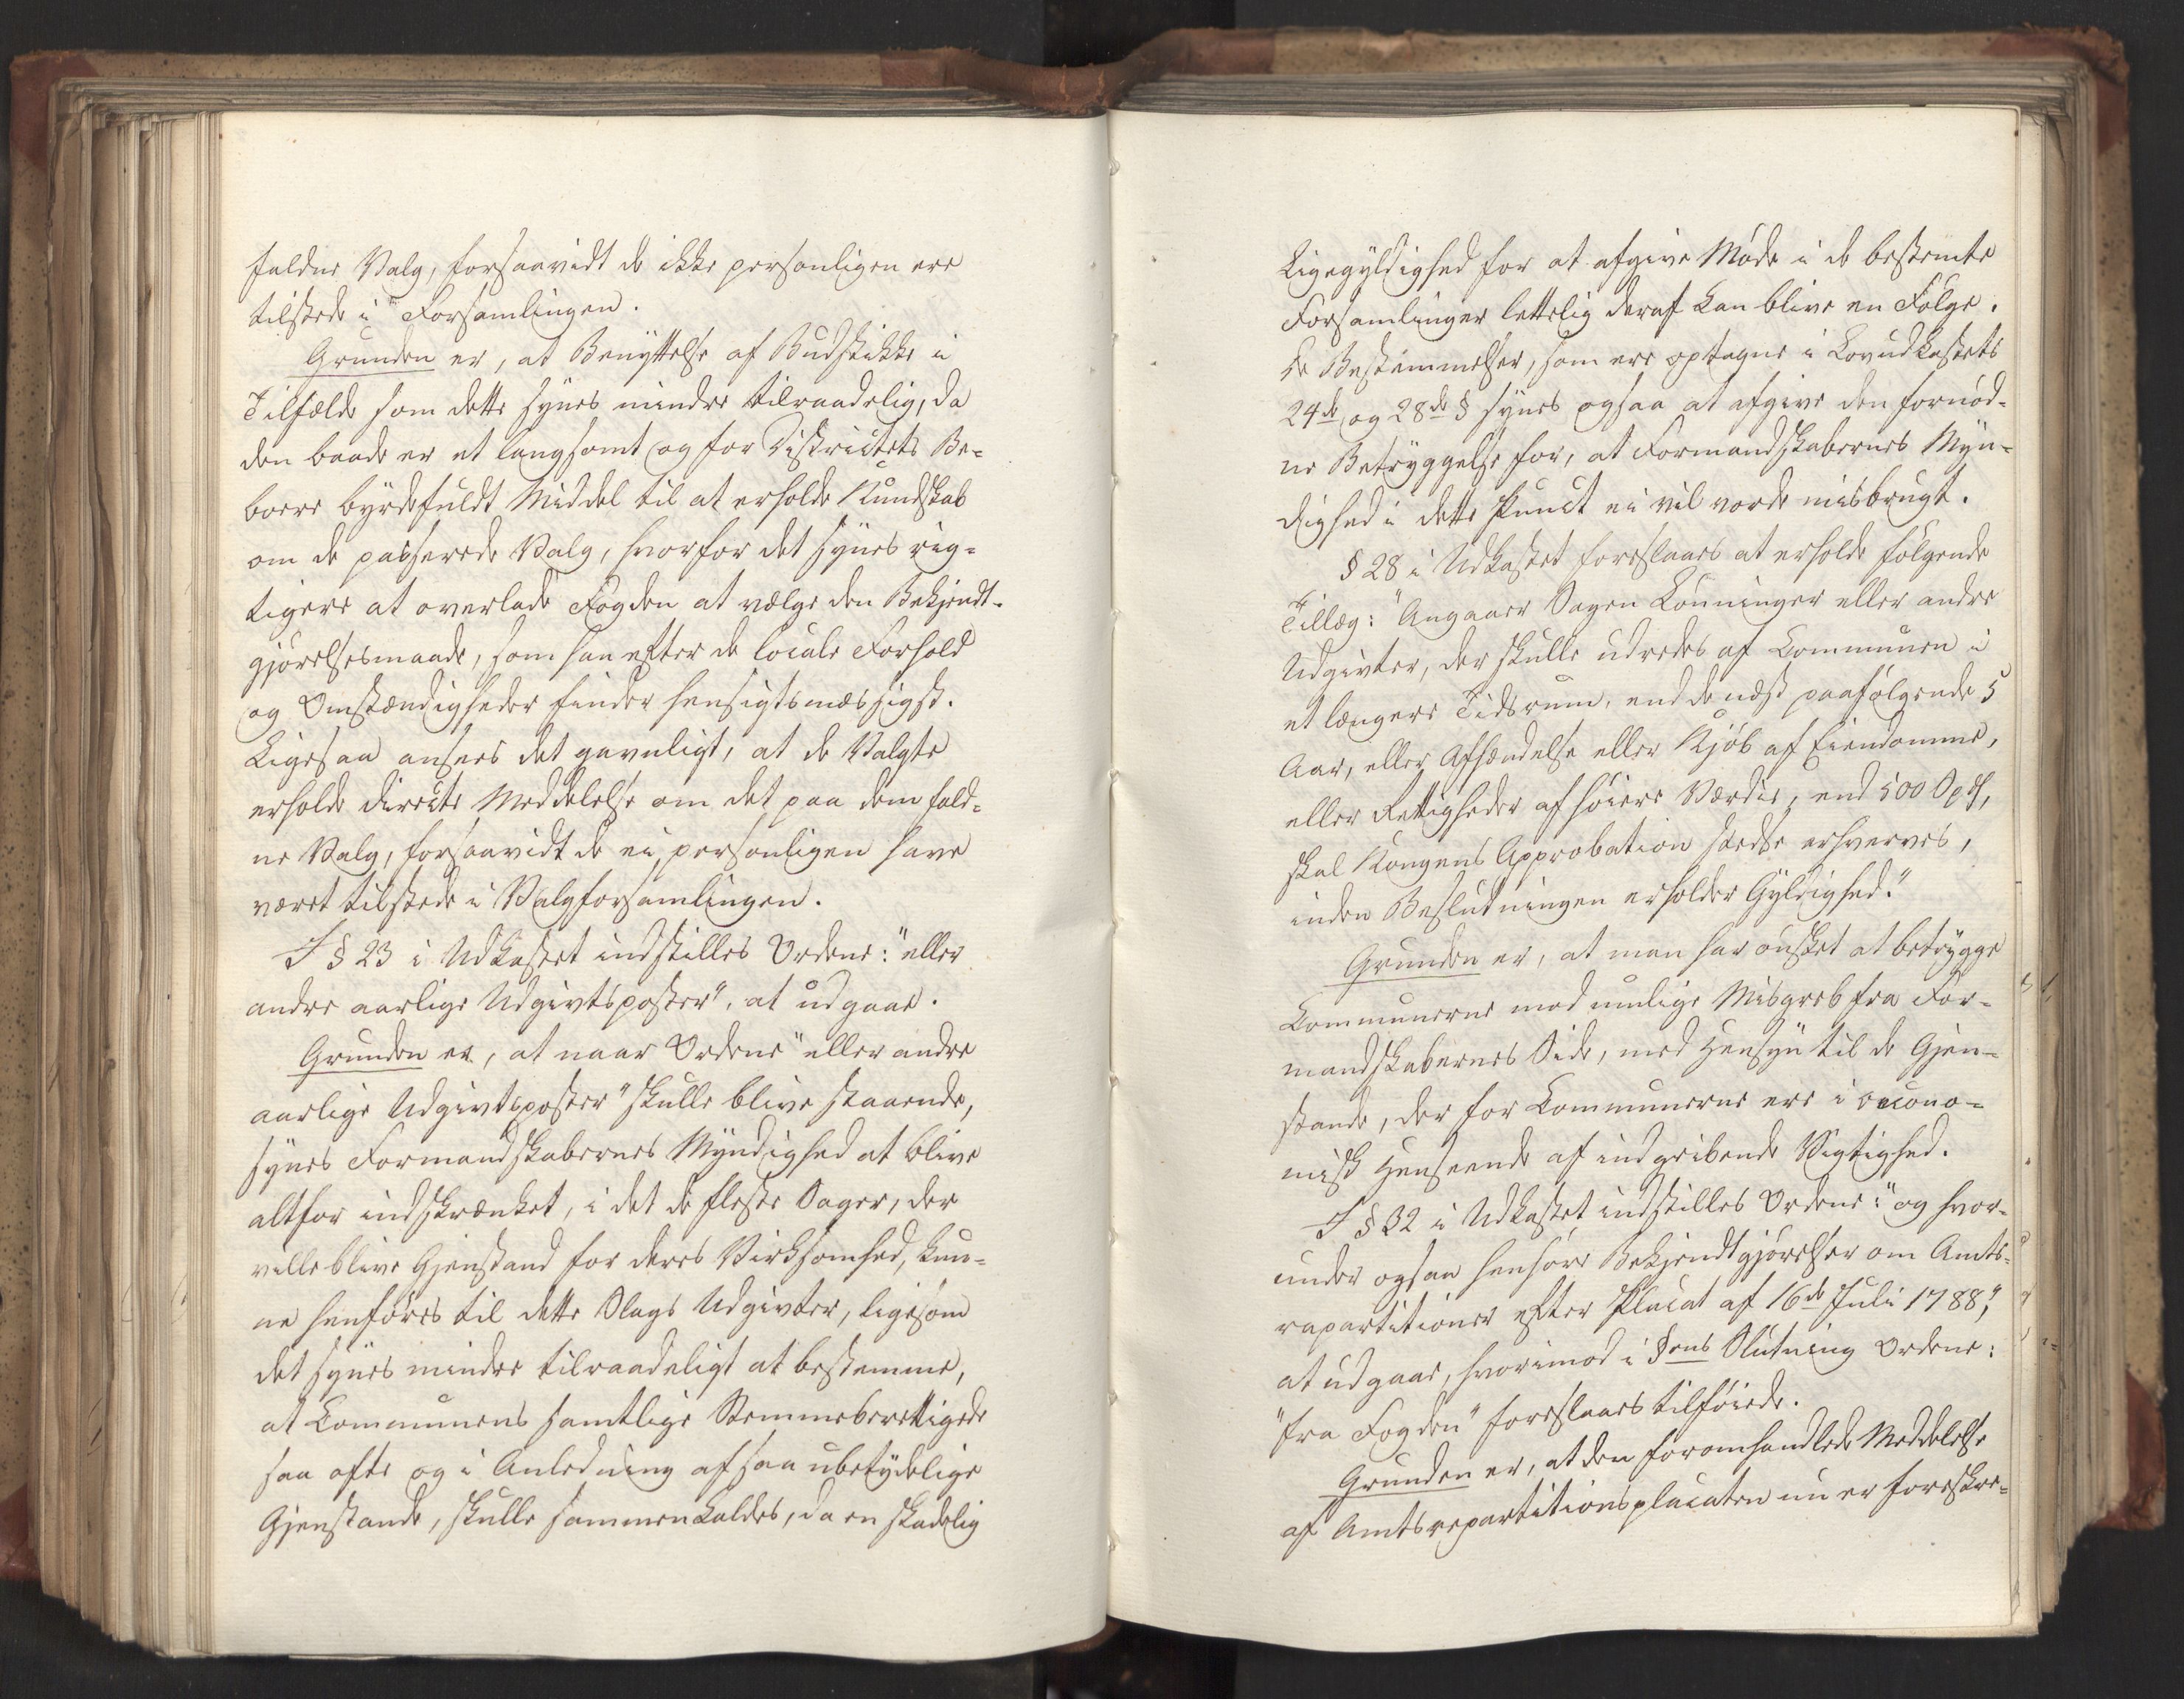 faldne Valg, forsaavidt de ikke personligen ere
tilstede i Forsamlingen.
Grunden er, at Benyttelse af Budstikke i
Tilfælde som dette synes mindre tilraadelig, da
den baade er et langsomt og for Districtets Be=
boere byrdefuldt Middel til at erholde Kundskab
om de passerede Valg, hvorfor det synes rig=
tigere at overlade Fogden at vælge den Bekjendt-
gjørelsesmaade, som han efter de locale Forhold
og Omstændigheder finder hensigtsmæssigst.
Ligesaa ansees det gavnligt, at de Valgte
erholde directe Meddelelse om det paa dem fald=
ne Valg, forsaavidt de ei personligen have
været tilstede i Valgforsamlingen.
I § 23 i Udkastet indstilles Ordene: "eller
andre aarlige Udgivtsposter", at udgaae.
Grunden er, at naar Ordene "eller andre
aarlige Udgivtsposter" skulle blive staaende,
synes Formandskabernes Myndighed at blive
altfor indskrænket, i det de fleste Sager, der
ville blive Gjenstand for deres Virksomhed, kun=
ne henføres til dette Slags Udgivter, ligesom
det synes mindre tilraadeligt at bestemme,
at Communens samtlige Stemmeberettigede
saa ofte og i Anledning af saa ubetydelige
Gjenstande, skulle sammenkaldes, da en skadelig
Ligegyldighed for at afgive Møde i de bestemte
Forsamlinger lettelig deraf kan blive en Følge.
De Bestemmelser, som ere optagne i Lovudkastets
24de og 28de § synes ogsaa at afgive den fornød=
ne Betryggelse for, at Formandskabernes Myn=
dighed i dette Punct ei vil vorde misbrugt.
§ 28 i Udkastet foreslaaes at erholde følgende
Tillæg: "Angaaer Sagen Lønninger eller andre
Udgivter, der skulle udredes af Communen i
et længere Tidsrum, end de næst paafølgende 5
Aar, eller Afhændelse eller Kjøb af Eiendomme,
eller Rettigheder af høiere Værdie, end 500 Spd,
skal Kongens Approbation stedse erhverves,
inden Beslutningen erholder Gyldighed."
Grunden er, at man har ønsket at betrygge
Communerne mod mulige Misgreb fra For=
mandskabernes Side, med Hensyn til de Gjen=
stande, der for Communerne ere i oecono=
misk Henseende af indgribende Vigtighed.
I § 32 i Udkastet indstilles Ordene: "og hvor=
under ogsaa henhøre Bekjendtgjørelser om Amts=
repartitioner efter Placat af 16de Juli 1788,"
at udgaae, hvorimod i §ens Slutning Ordene:
"fra Fogden" foreslaaes tilføiede.
Grunden er, at den foromhandlede Meddelelse
af Amtsrepartitionsplacaten nu er foreskre=